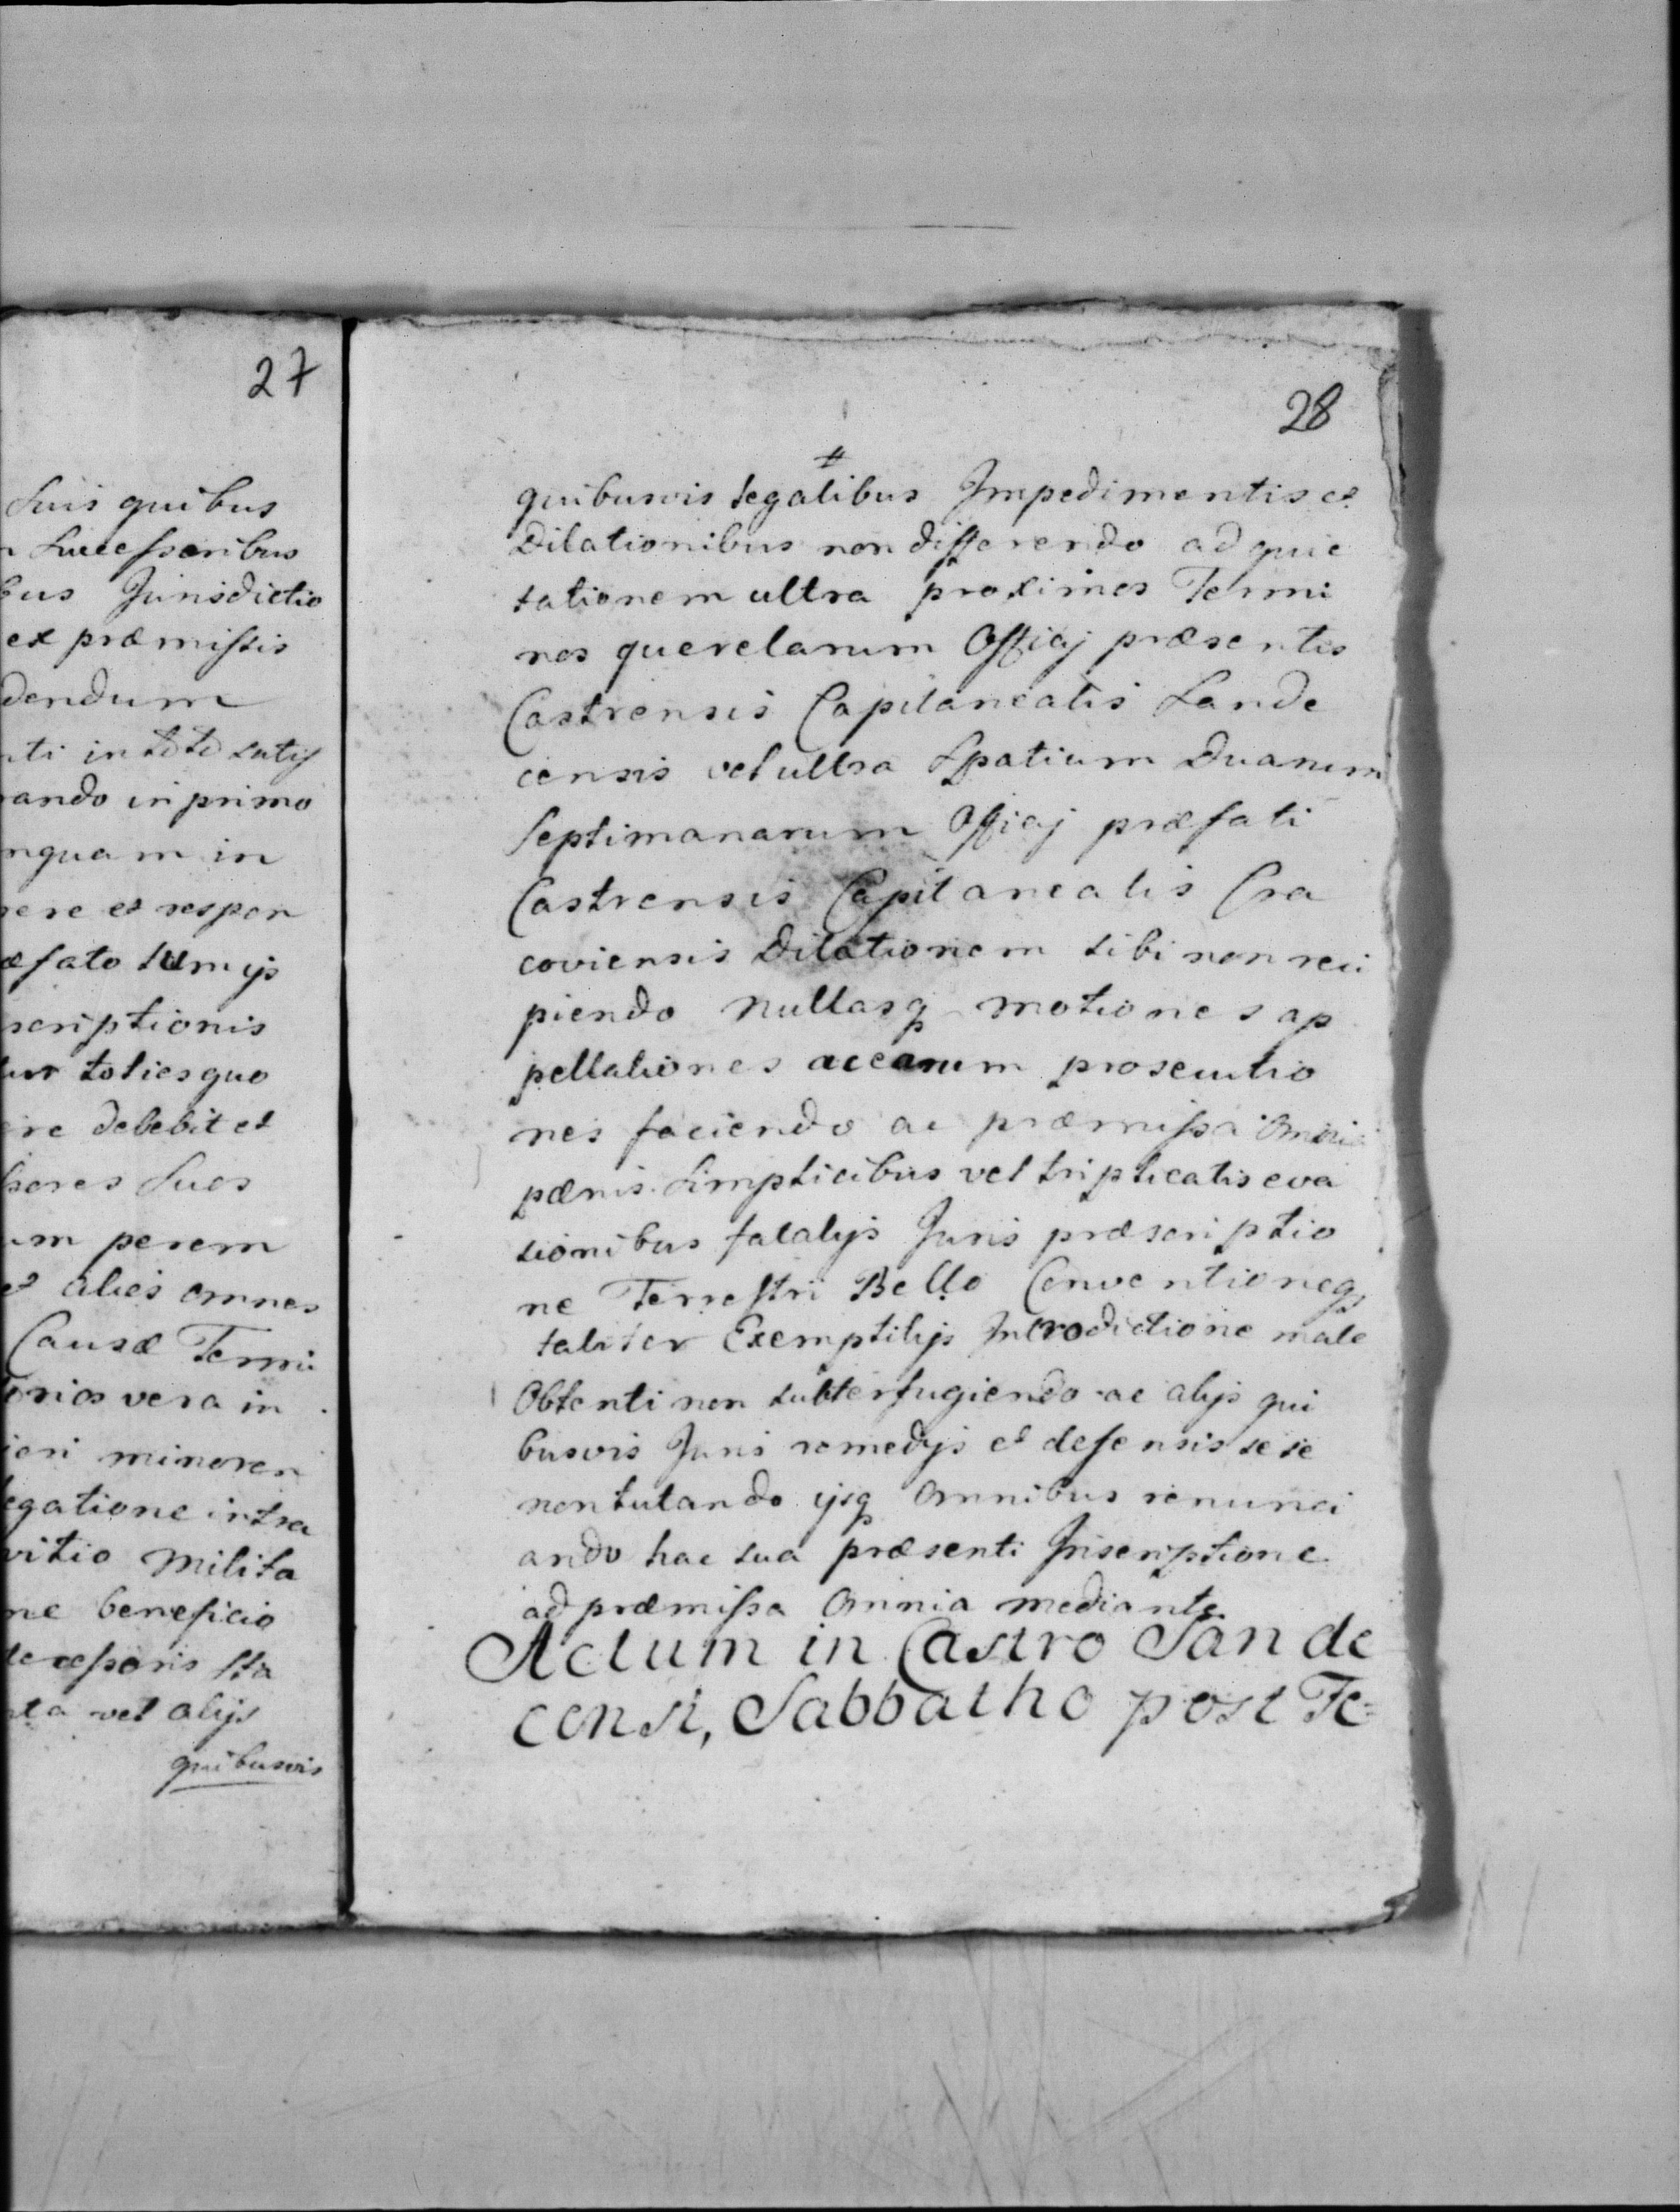 27
Suis quibus
Succeſsoribus
bus Jurisdictio
ex præmiſsis
dendum
nti in toto satis
ando in primo
nquam in
ere et respon
æfato tum ijs
scriptionis
tur toties quo
ere debebit et
ſsores Suos
um perem
et alios omnes
Causæ Termi
orios vera in
iori minoren
legatione intra
vitio Milita
ne beneficio
deceſsoris Sta
ta vel alijs
quibusvis
28
#
quibusvis legalibus Impedimentis et
Dilationibus non differendo ad quie
tationem ultra proximos Termi
nos querelarum Officij præsentis
Castrensis Capitanealis Sande
censis vel ultra Spatium Duarum
Septimanarum Officij præfati
Castrensis Capitanealis Cra
coviensis Dilationem sibi non reci
piendo nullasq motiones ap
pellationes ac earum prosecutio
nes faciendo ac præmiſsa Omnia
pœnis Simplicibus vel triplicatis eva
sionibus fatalijs Juris præscriptio
ne Terreſtri Bello Conventioneq
taliter Exemptilijs Introdictione male
Obtenti non subterfugiendo ac alijs qui
busvis Juris remedijs et defensis se se
non tutando ijsq Omnibus renunci
ando hac sua præsenti Inscriptione
ad præmiſsa Omnia mediante
Actum in Castro Sande
censi, Sabbatho post Fe=